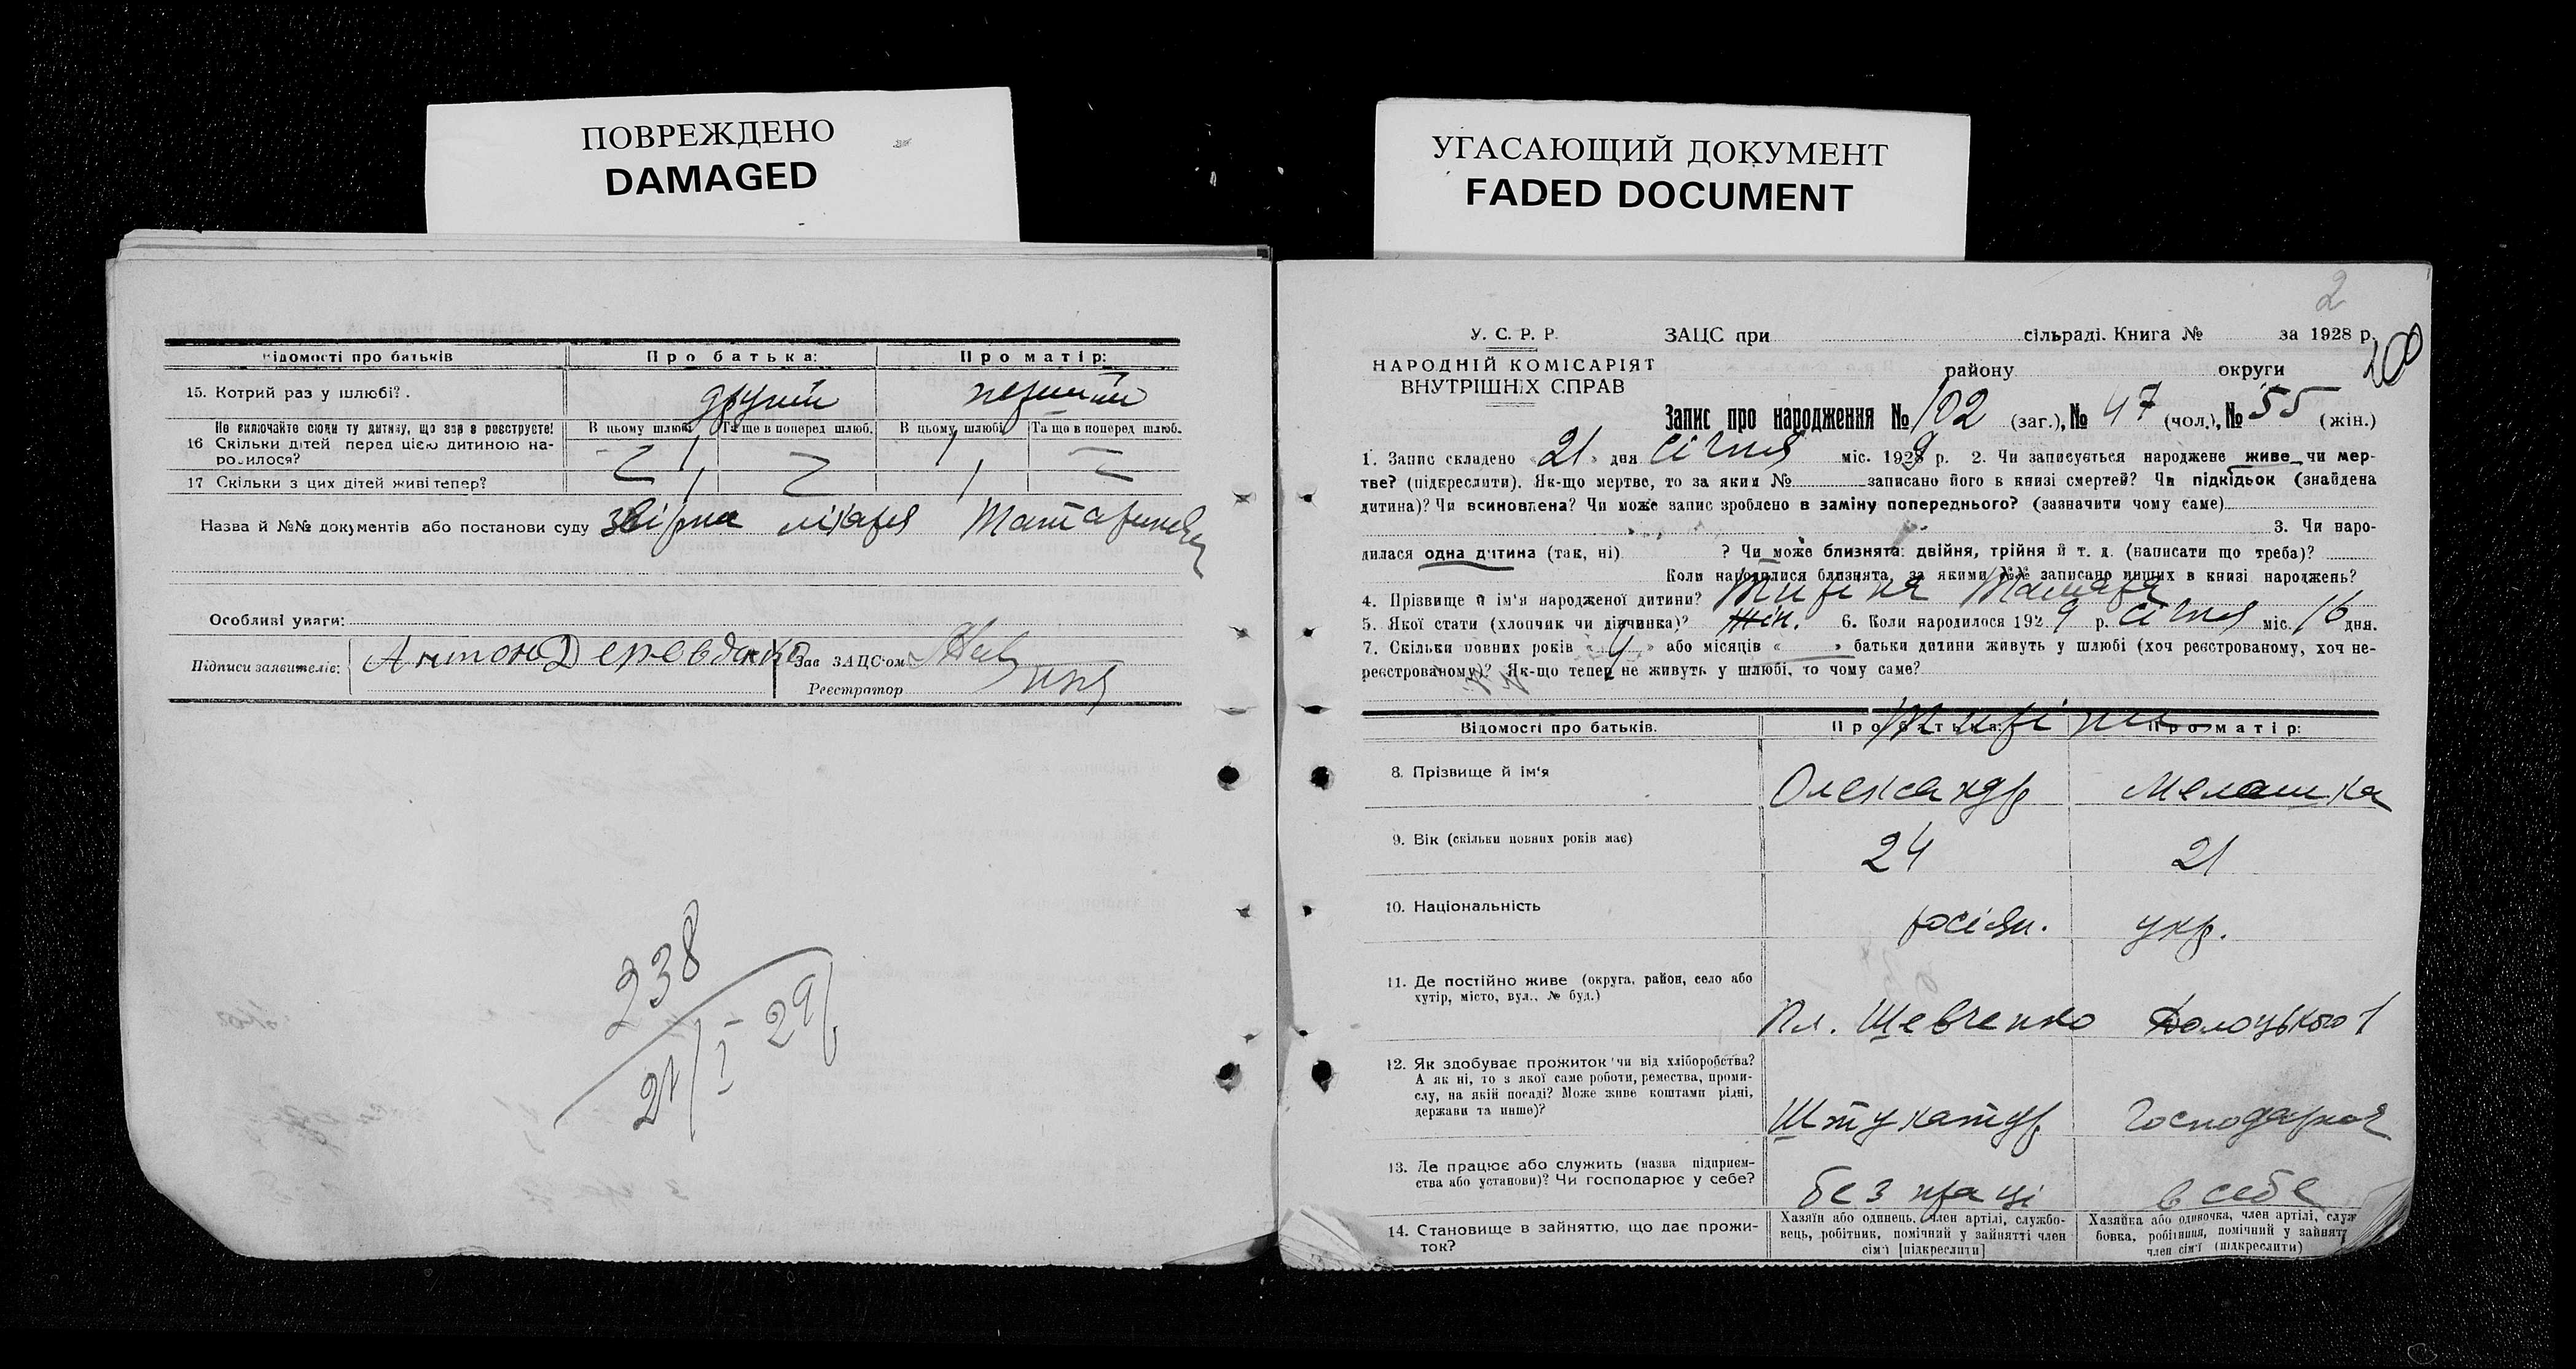 ПОВРЕЖДЕНО
DAMAGED
Відомості про батьків
Про батька:
Про матір:
15. Котрий раз у шлюбі?.
другий
перший
Не включайте сюди ту дитину, що зар з реєструєте!
16 Скільки дітей перед цією дитиною на-
родилося?
В цьому шлюбі
Та ще в поперед шлюб.
В цьому шлюбі
Та що в поперед шлюб.
1
1
17 Скільки з цих дітей живі тепер?
1
1
Назва й №№ документів або постанови суду
лікаря
Особливі уваги:
Підписи заявителів:
Антон Деревянко
Зав ЗАЦС'ом
Реєстратор
238
21/I-29
УГАСАЮЩИЙ ДОКУМЕНТ
FADED DOCUMENT
2
200
У. С. Р. Р.
НАРОДНІЙ КОМІСАРІЯТ
ВНУТРІШНІХ СПРАВ
ЗАЦС при сільраді. Книга № за 1928 р.
району округи
Запис про народження № 102 (заг.), № 47 (чол.), № 55 (жін.)
1. Запис складено «21» дня січня міс. 1929 р. 2. Чи записується народжене живе чи мер-
тве? (підкреслити). Як-що мертве, то за яким № записано його в книзі смертей? Чи підкідьок (знайдена
дитина)? Чи всиновлена? Чи може запис зроблено в заміну попереднього? (зазначити чому саме)
3. Чи наро-
дилася одна дитина (так, ні) ? Чи може близнята: двійня, трійня й т. д. (написати що треба)?
Коли народилися близнята, за якими №№ записано инших в книзі народжень?
4. Прізвище й ім'я народженої дитини? Тамара
5. Якої стати (хлопчик чи дівчинка)? жін. 6. Коли народилося 1929 р. січня міс. 16 дня.
7. Скільки повних років «4» або місяців « » батьки дитини живуть у шлюбі (хоч реєстрованому, хоч не-
реєстрованому)? Як-що тепер не живуть у шлюбі, то чому саме?
Відомості про батьків.
Про батька:
Про матір:
8. Прізвище й ім'я
Олександр
Мелашка
9. Вік (скільки повних років має)
24
21
10. Національність
росіян.
укр.
11. Де постійно живе (округа, район, село або
хутір, місто, вул., № буд.)
Пл. Шевченко
12. Як здобуває прожиток чи від хліборобства?
А як ні, то з якої саме роботи, ремества, проми-
слу, на якій посаді? Може живе коштами рідні,
держави та инше)?
Штукатур
Господаркоя
13. Де працює або служить (назва підприєм-
ства або установи)? Чи господарює у себе?
без праці
в себе
14. Становище в зайняттю, що дає прожи-
ток?
Хазяїн або одинець, член артілі, службо-
вець, робітник, помічний у зайнятті член
сім'ї [підкреслити]
Хазяйка або одиночка, член артілі, служ
бовка, робітниця, помічний у зайнят
член сім'ї (підкреслити)